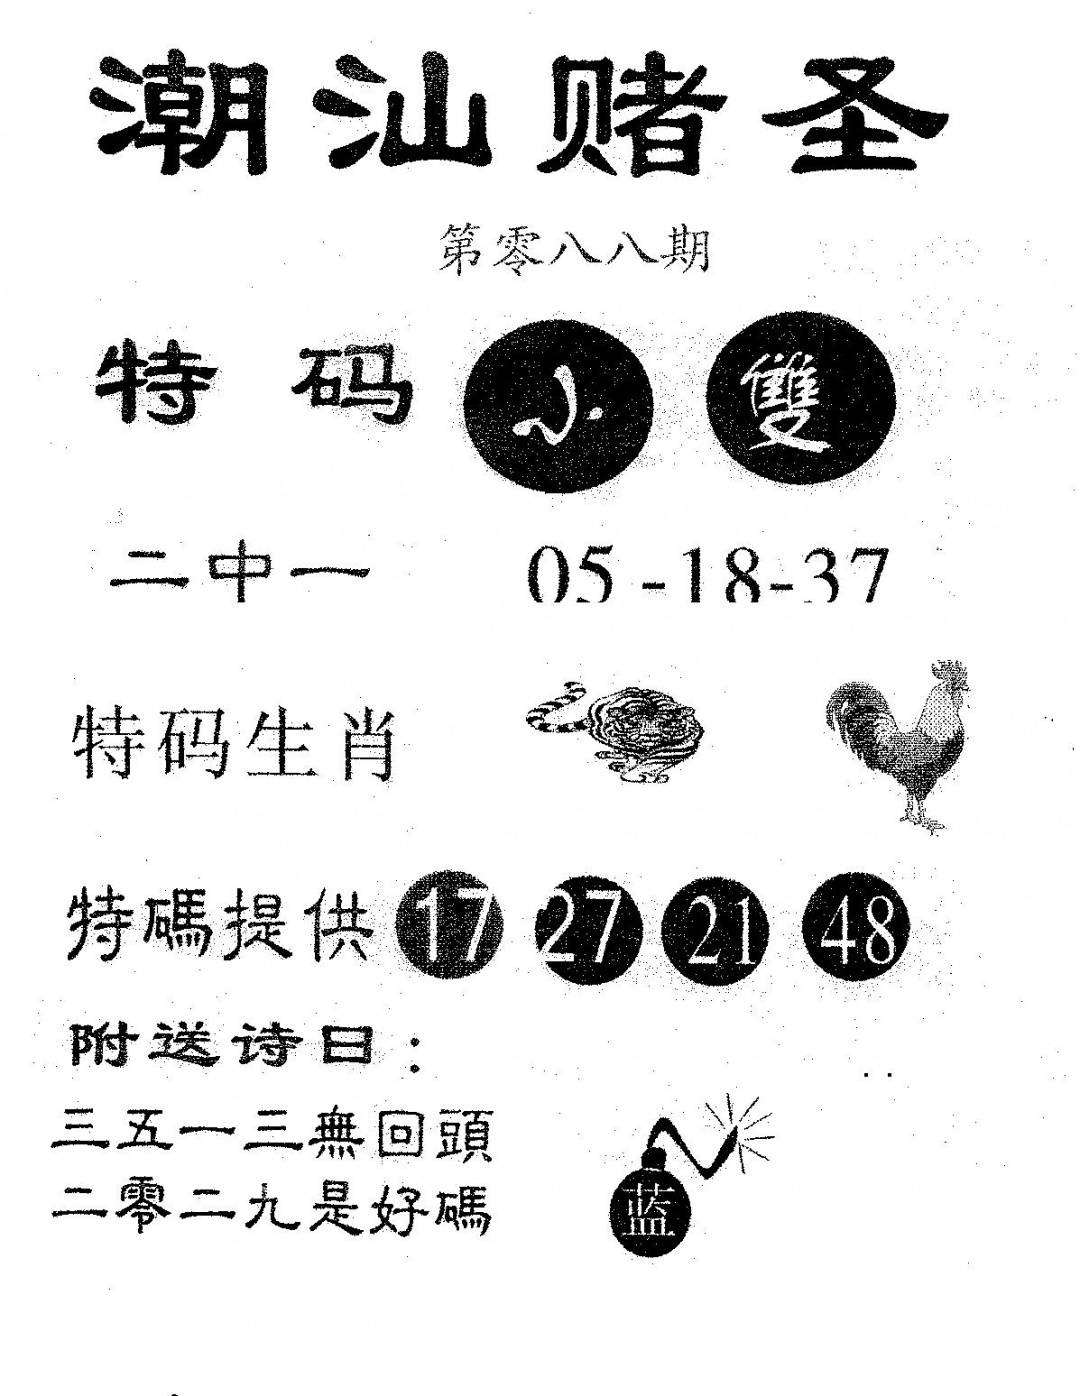 潮汕赌圣
第零八八期
特码 小 雙
二中一 05-18-37
特码生肖
特碼提供 17 27 21 48
附送诗曰：
三五一三無回頭
二零二九是好碼
蓝